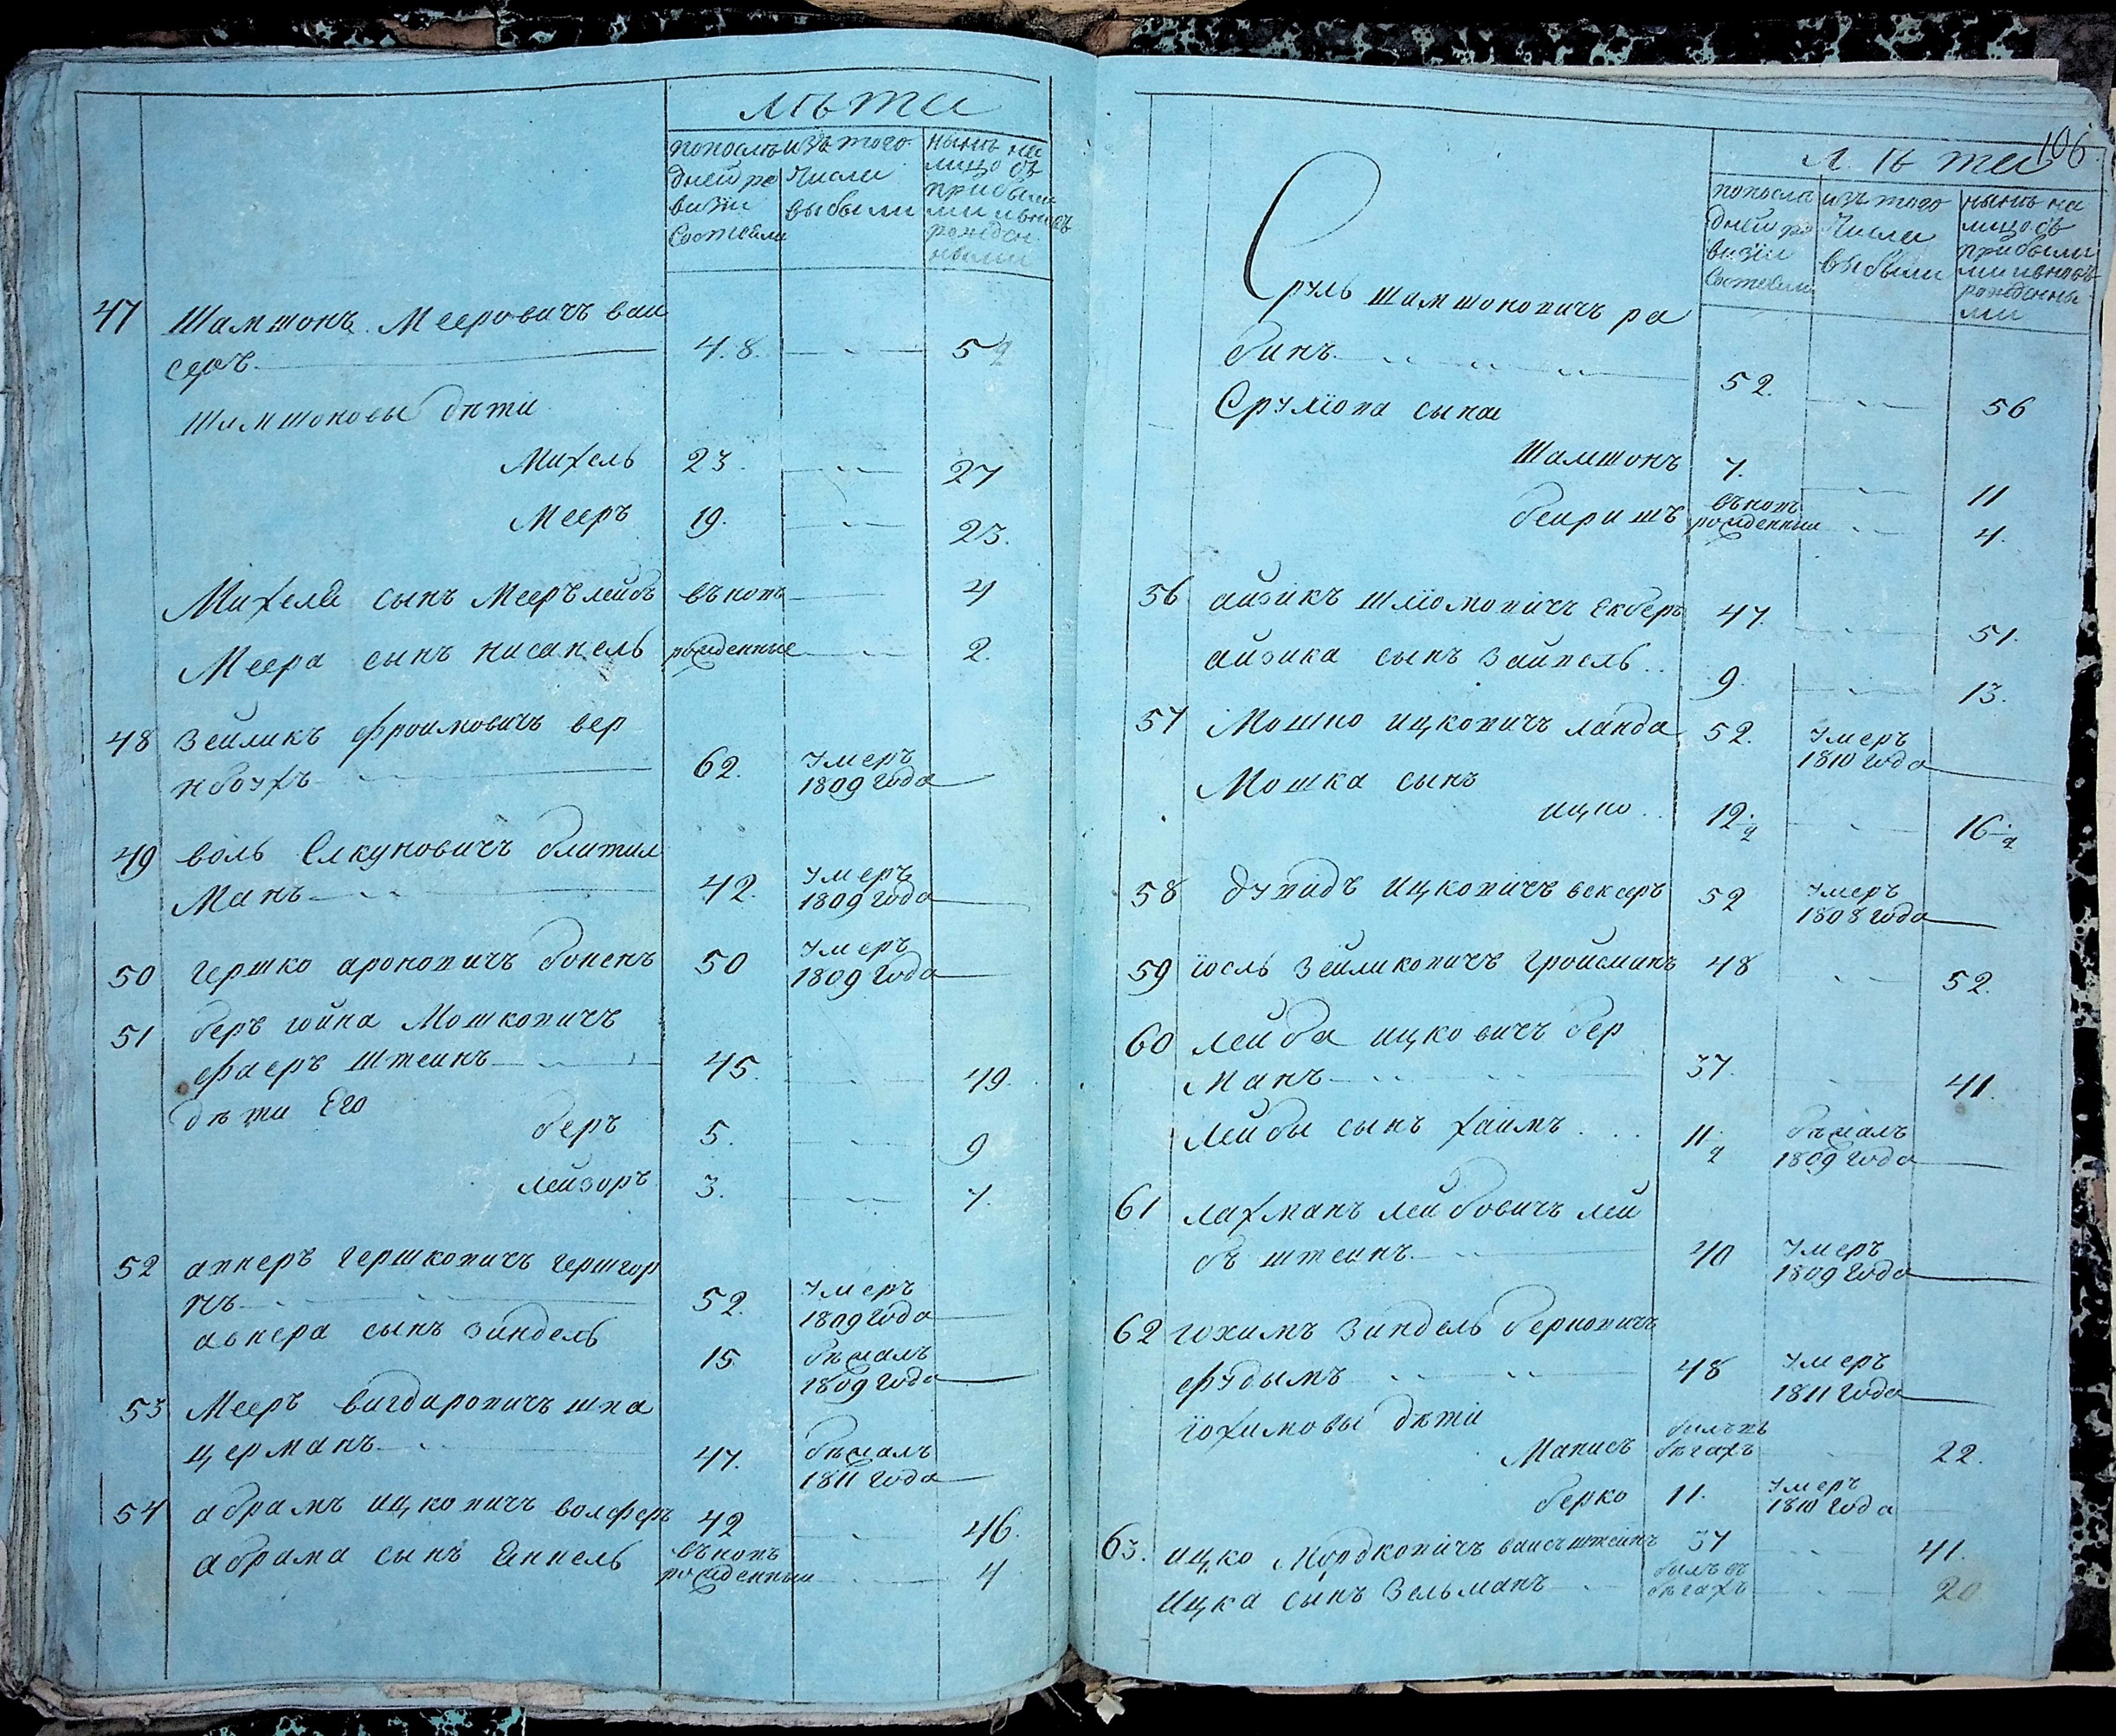 лѣта
попослѣ дней ре визіи состояли
изъ того числа выбыли
нынѣ на лицо съ прибыли ми и вновь рожден ными
47 Шамшонъ Мееровичъ ваи
серъ 48. 52
Шамшоновы дѣти
Михель 23. 27
Мееръ 19. 23.
Михеля сынъ Мееръ лейбъ въновъ 4
Меера сынъ нисанель рожденные 2.
48 Зейликъ фроимовичъ вер
нбоухъ 62. умеръ 1809 года
49 воль Елкуновичъ блитил
Манъ 42. умеръ 1809 года
50 гершко ароновичъ боненъ 50 умеръ 1809 года
51 беръ гойна Мошковичъ
фаеръ штеинъ 45. 49.
дѣти Его
беръ 5. 9
лейзоръ 3. 7.
52 авнеръ гершковичъ гершгор
нъ 52. умеръ 1809 года
авнера сынъ зиндель 15 бѣжалъ 1809 года
53 Мееръ вигдаровичъ шпа
церманъ 47. бѣжалъ 1811 года
54 абрамъ ицковичъ волферъ 42 46.
абрама сынъ Еппель въновъ рожденный 4
106.
лѣта
попосла дней ре визіи состояли
изъ того числа выбыли
нынѣ на лицо съ прибыли ми и вновь рожденны ми
Сруль шамшоновичъ ра
бинъ 52. 56
Срулiова сына
Шамшонъ 7. 11
беиришъ въновъ рожденный 4.
56 айзикъ шлiомовичъ Екберъ 47. 51.
айзика сынъ Зайвель 9. 13.
57 Мошко ицковичъ ланда 52. умеръ 1810 года
Мошка сынъ
ицко 12 1/2 16 1/2
58 дувидъ ицковичъ векеръ 52 умеръ 1808 года
59 іосль Зейликовичъ гройсманъ 48 52.
60 лейба ицковичъ бер
манъ 37. 41.
лейбы сынъ хаимъ 11 1/2 бѣжалъ 1809 года
61 лахманъ лейбовичъ лей
бъ штеинъ 40 умеръ 1809 года
62 гохимъ Зиндель берковичъ
фудымъ 48 умеръ 1811 года
іохимовы дѣти
Манисъ былъ въ бѣгахъ 22.
берко 11. умеръ 1810 года
63. ицко Мордковичъ ваисъштейнъ 37 41.
Ицка сынъ Зельманъ былъ въ бѣгахъ 20